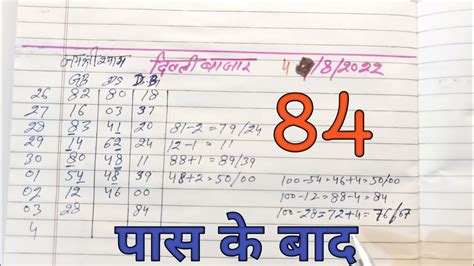 जय श्री श्याम
दिवली बाजार 4/8/2022
GB DS D.B
26 82 80 18
27 16 03 37
28 83 41 20 81-2=79/24
29 14 62 24 12-1=11
30 80 48 11 88+1=89/39
01 54 48 39 48+2=50/00 100-54=46+4=50/00
02 12 46 00 100-12=88-4=84
03 28 84 100-28=72+4=76/67
4
84
पास के बाद